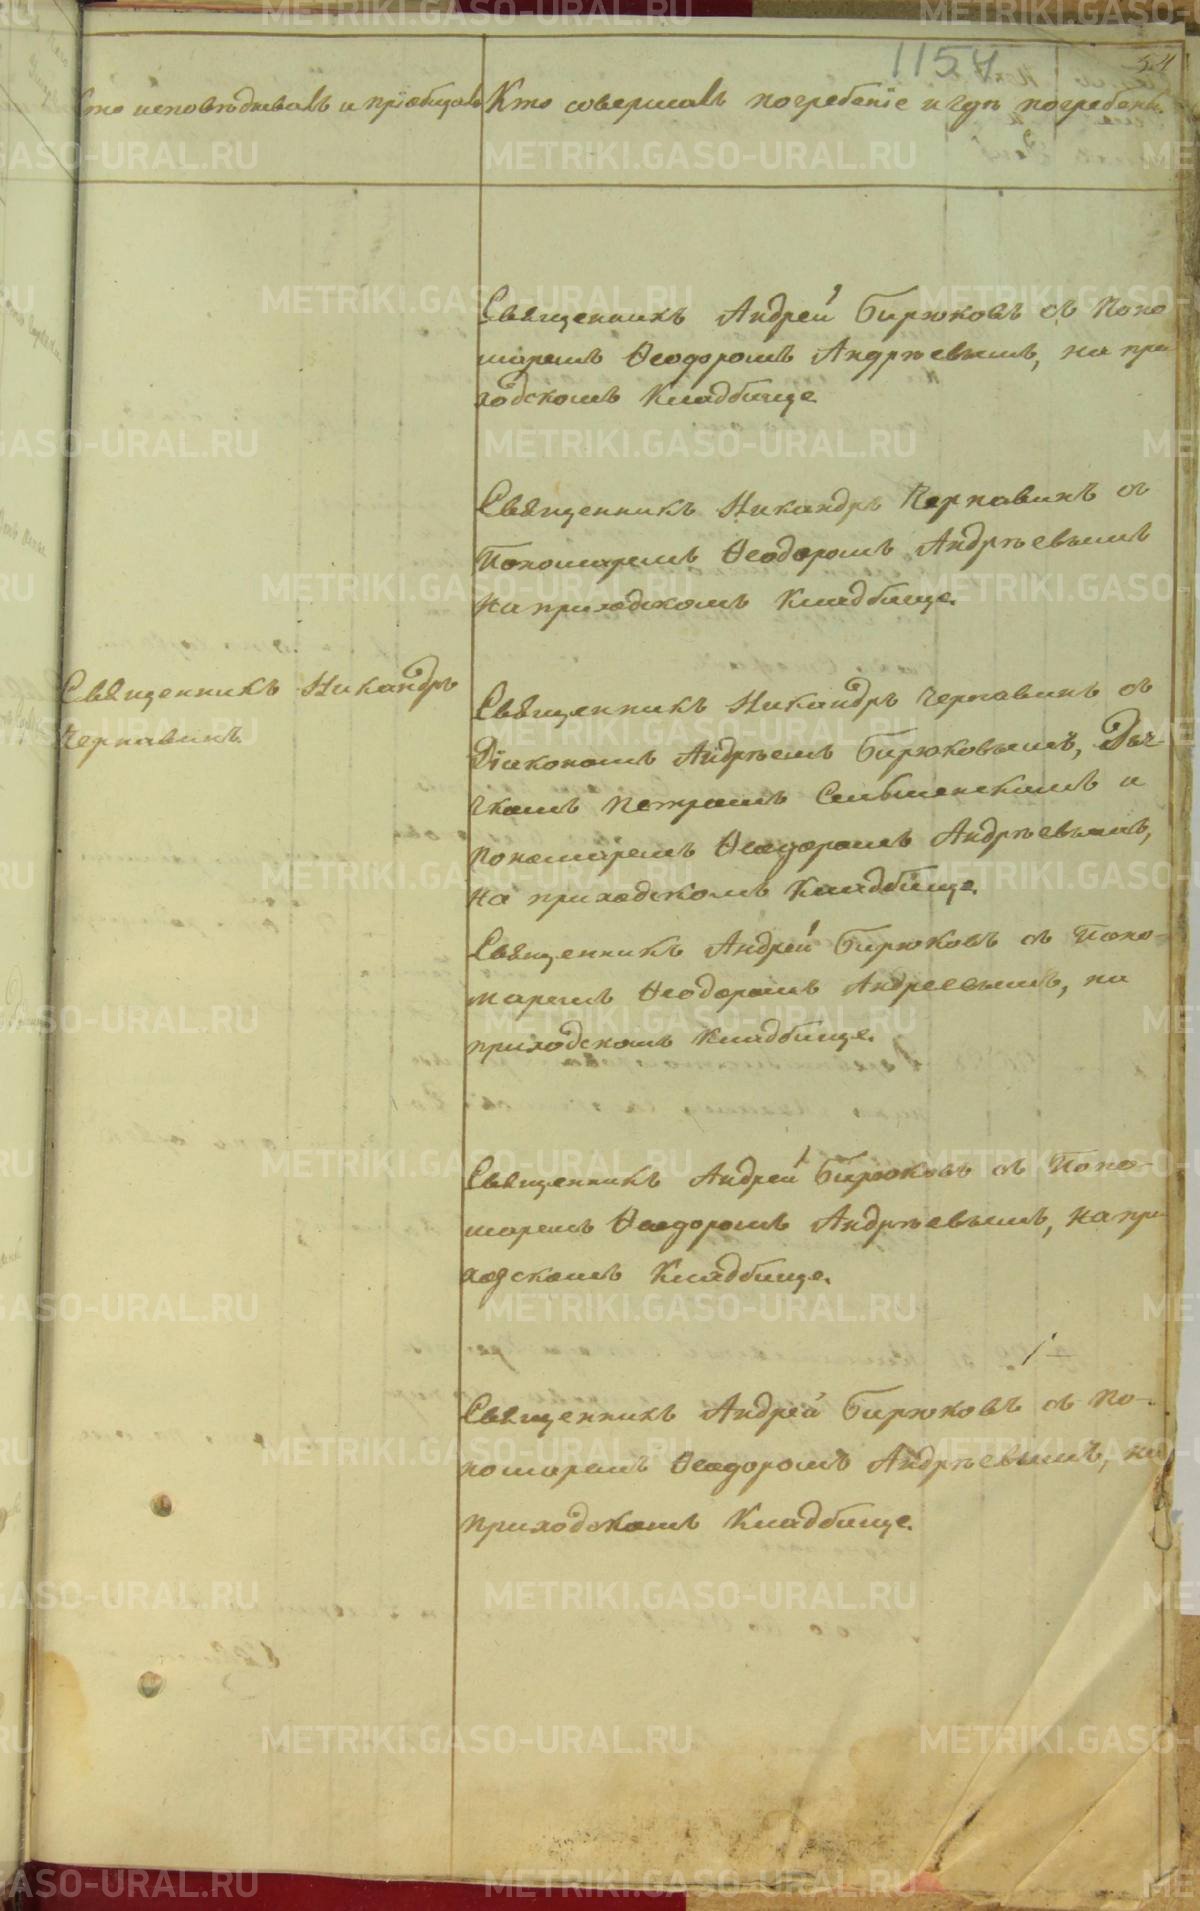 1154
54
Кто исповѣдывалъ и пріобщалъ
Кто совершалъ погребеніе и гдѣ погребены.
Священникъ Андрей Бирюковъ съ Поно
маремъ Ѳеодоромъ Андрѣевымъ, на при
ходскомъ Кладбище
Священникъ Никандръ Чернавинъ съ
Пономаремъ Ѳеодоромъ Андрѣевымъ
на приходскомъ Кладбище.
Священникъ Никандръ
Чернавинъ.
Священникъ Никандръ Чернавинъ съ
Діакономъ Андрѣемъ Бирюковымъ, Дья-
чкомъ Петромъ и
пономаремъ Ѳеодоромъ Андрѣевымъ,
на приходскомъ Кладбище.
Священникъ Андрей Бирюковъ съ Поно-
маремъ Ѳеодоромъ Андреевымъ, на
приходскомъ Кладбище.
Священникъ Андрей Бирюковъ съ Поно-
маремъ Ѳеодоромъ Андрѣевымъ, на при-
ходскомъ Кладбище.
Священникъ Андрей Бирюковъ съ По-
номаремъ Ѳеодоромъ Андрѣевымъ, на
приходскомъ Кладбище.
METRIKI.GASO-URAL.RU